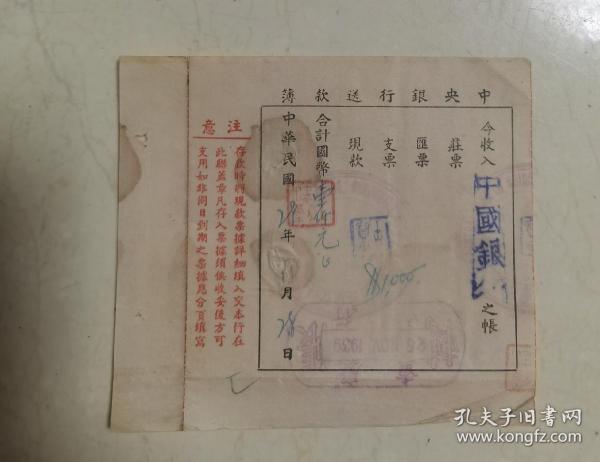 中央銀行送款簿
今收入中國銀行之帳
莊票
匯票
支票
現款
合計國幣壹仟元正
$1,000.
中華民國28年11月28日
注意
存款時將現款票據詳細填入交本行在
此聯蓋章凡存入票據須俟收妥後方可
支用如非同日到期之票據應分頁填寫
NOV 1939
孔夫子旧书网
www.kongfz.com